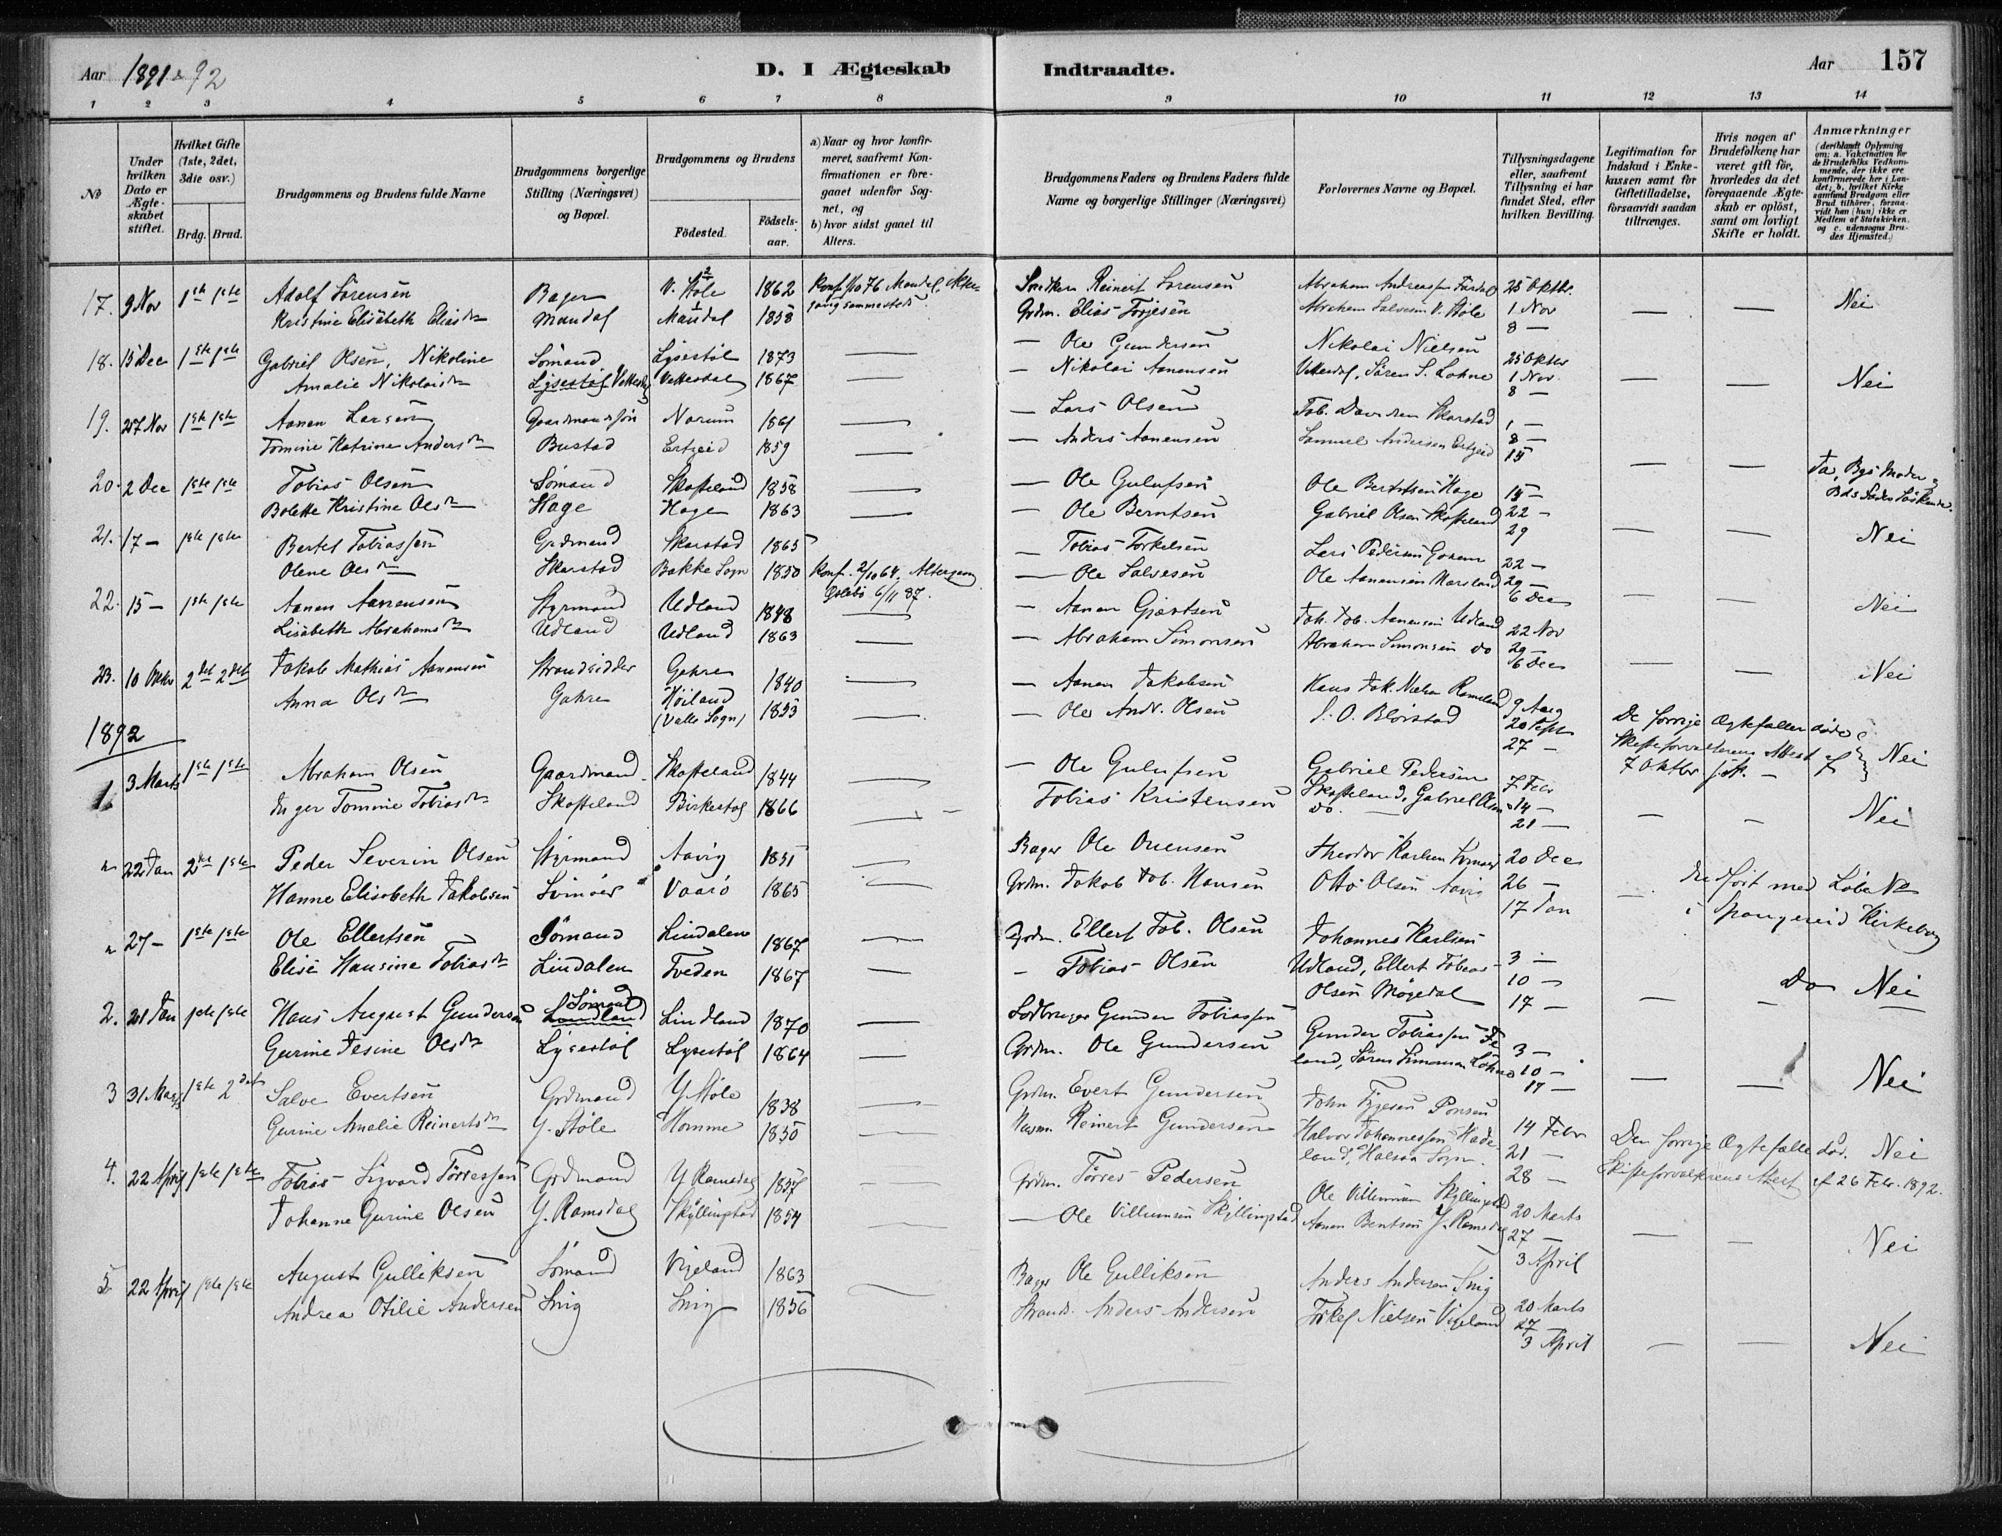 Aar 1891 & 92
D. I Ægteskab Indtraadte.
Aar 157
1 2 3 4 5 6 7 8 9 10 11 12 13 14
No
Under hvilken Dato er Ægteskabet stiftet.
Hvilket Gifte (1ste, 2det, 3die osv.)
Brdg. Brud.
Brudgommens og Brudens fulde Navne
Brudgommens borgerlige Stilling (Næringsvei) og Bopæl.
Brudgommens og Brudens
Födested. Födselsaar.
a) Naar og hvor konfirmeret, saafremt Konfirmationen er foregaaet udenfor Sognet, og
b) hvor sidst gaaet til Alters.
Brudgommens Faders og Brudens Faders fulde Navne og borgerlige Stillinger (Næringsvei)
Forlovernes Navne og Bopæl.
Tillysningsdagene eller, saafremt Tillysning ei har fundet Sted, efter hvilken Bevilling.
Legitimation for Indskud i Enkekassen samt for Giftetilladelse, forsaavidt saadan tiltrænges.
Hvis nogen af Brudefolkene har været gift för, hvorledes da det foregaaende Ægteskab er oplöst, samt om lovligt Skifte er holdt.
Anmærkninger (deriblandt Oplysning om: a. Vakcination for de Brudefolks Vedkommende, der ikke ere konfirmerede her i Landet; b. hvilket Kirkesamfund Brudgom eller Brud tilhörer, forsaavidt han (hun) ikke er Medlem af Statskirken, og c. udensogns Brudes Hjemsted.)
17. 9 Nov 1ste 1ste Adolf Sörensen Bager V. Stöle 1862 Konf. 1/10 76 Mandal, Reinert Sorensen Abraham Andreassen 25 Oktbr.
Kristine Elisabeth Eliasdtr Mandal Mandal 1858 Grdm. Elias Torjesen Abraham Salvesen V. Stöle 1 Nov — — Nei
8 —
18. 15 Dec 1ste 1ste Gabriel Olsen, Nikoline Sömand Lysestöl 1873 — — Ole Gundersen Nikolai Nielsen 25 Oktbr
Amalie Nikolaisdtr Lysestöl Vattestøl 1867 — — Nikolai Aanensen Søren S. Lohne 1 Nov. — — Nei
8 —
19. 27 Nov 1ste 1ste Aanen Larsen Gaardmandssön Norum 1861 — — Lars Olsen Tob. Davidsen Skarstad 1 —
Tomine Katrine Andersdtr Bustad Ertzeid 1859 — — Anders Aanensen Samuel Andersen Ertzeid 8 —
15
20. 2 Dec 1ste 1ste Tobias Olsen Sömand Skofteland 1858 — — Ole Gulufsen Ole Berntsen Hage 15 — — — Ja, Bgs Moder og
Bolette Kristine Olsdtr Hage Hage 1863 — — Ole Berntsen Gabriel Olsen Skofteland 22 — Bds Fader Söskende.
29
21. 17 — 1ste 1ste Bertel Tobiassen Grdmand Skarstad 1865 — Tobias Torkelsen Lars Pedersen 22 — — — Nei
Olene Olsdtr Skarstad Bakke Sogn 1850 Konf. 2/10 64. Altergang — Ole Salvesen Ole Aanensen 29 —
6/11 87. 6 Dec
22. 15 — 1ste 1ste Aanen Aanensen Styrmand Udland 1848 — — Aanen Gjertsen Joh. Tob. Aanensen Udland 22 Nov — — Nei
Lisabeth Abrahamsdtr Udland Udland 1863 — — Abraham Simonsen Abraham Simonsen do 29 —
6 Dec
23. 10 Oktbr 2det 2det Jakob Mathias Aanensen Strandsidder Gahre 1840 — — Aanen Jakobsen Hans Jak. 9 Aug — — Nei
Anna Olsdtr Gahre Höiland (Valle Sogn) 1853 — — Ole Andr. Olsen S. O. Blörstad 20 Sept
27 —
De forrige Ægtefæller døde
Skifteforvalterens Attest af
7 Oktbr Nei
1892
1. 3 Marts 1ste 1ste Abraham Olsen Gaardmand Skofteland 1844 — — Ole Gulufsen Gabriel Pedersen 7 Febr
Inger Tomine Tobiasdtr Skofteland Birkestøl 1866 — Tobias Kristensen Skofteland, Gabriel Olsen do. 14 — — — Nei
21 —
22 Jan 2det 1ste Peder Severin Olsen Styrmand Aavig 1851 — Bager Ole Ouensen Theodor Karlsen 20 Dec
Hanne Elisabeth Jakobsen Svinöer Vaarö 1865 — Grdm. Jakob Tob. Hansen Otto Olsen Aavig 26 — —
17 Jan
med Löbe No
i Spangereid Kirkebog
27 — 1ste 1ste Ole Ellertsen Sömand Lindalen 1867 — Grdm. Ellert Tob. Olsen Johannes Karlsen 3 —
Elise Hansine Tobiasdtr Lindalen Tveden 1867 — — Tobias Olsen Udland, Ellert Tobias 10 — do Nei
Olsen Mögedal 17 — — —
2. 21 Jan 1ste 1ste Hans August Gundersen Sömand Lindland Lindland 1870 — Gunder Tobiassen Gunder Tobiassen 3 —
Gurine Jesine Olsdtr Lysestöl Lysestöl 1864 — Grdm. Ole Gundersen Sören Simonsen Lohne 10 —
17 — — — Nei
3 31 Marts 1ste 2det Salve Evertsen Grdmand Y. Stöle 1838 — Grdm. Evert Gundersen John 14 Febr
Gurine Amalie Reinertsdtr Y. Stöle Homme 1850 — Reinert Gundersen Halvor Johannessen 21 —
land, Halsaa Sogn. 28 —
Den forrige Ægtefælle död. Nei
Skifteforvalterens Attest af 26 Febr. 1892.
4. 22 April 1ste 1ste Tobias Sigvard Törressen Grdmand Y Ramsdal 1857 — Grdm. Törres Pedersen Ole Villumsen Skyllingstad 20 Marts
Johanne Gurine Olsen Y. Ramsdal Skyllingstad 1854 — — Ole Villumsen Skyllingstad Aanen Bentsen Y. Ramsdal 27 — — — Nei
3 April
5. 22 April 1ste 1ste August Gulliksen Sömand Vigeland 1863 — Bager Ole Gulliksen Anders Andersen Snig 20 Marts
Andrea Otilie Andersen Snig Snig 1856 Strands. Anders Andersen Torkel Nielsen Vigeland 27
3 April — — Nei